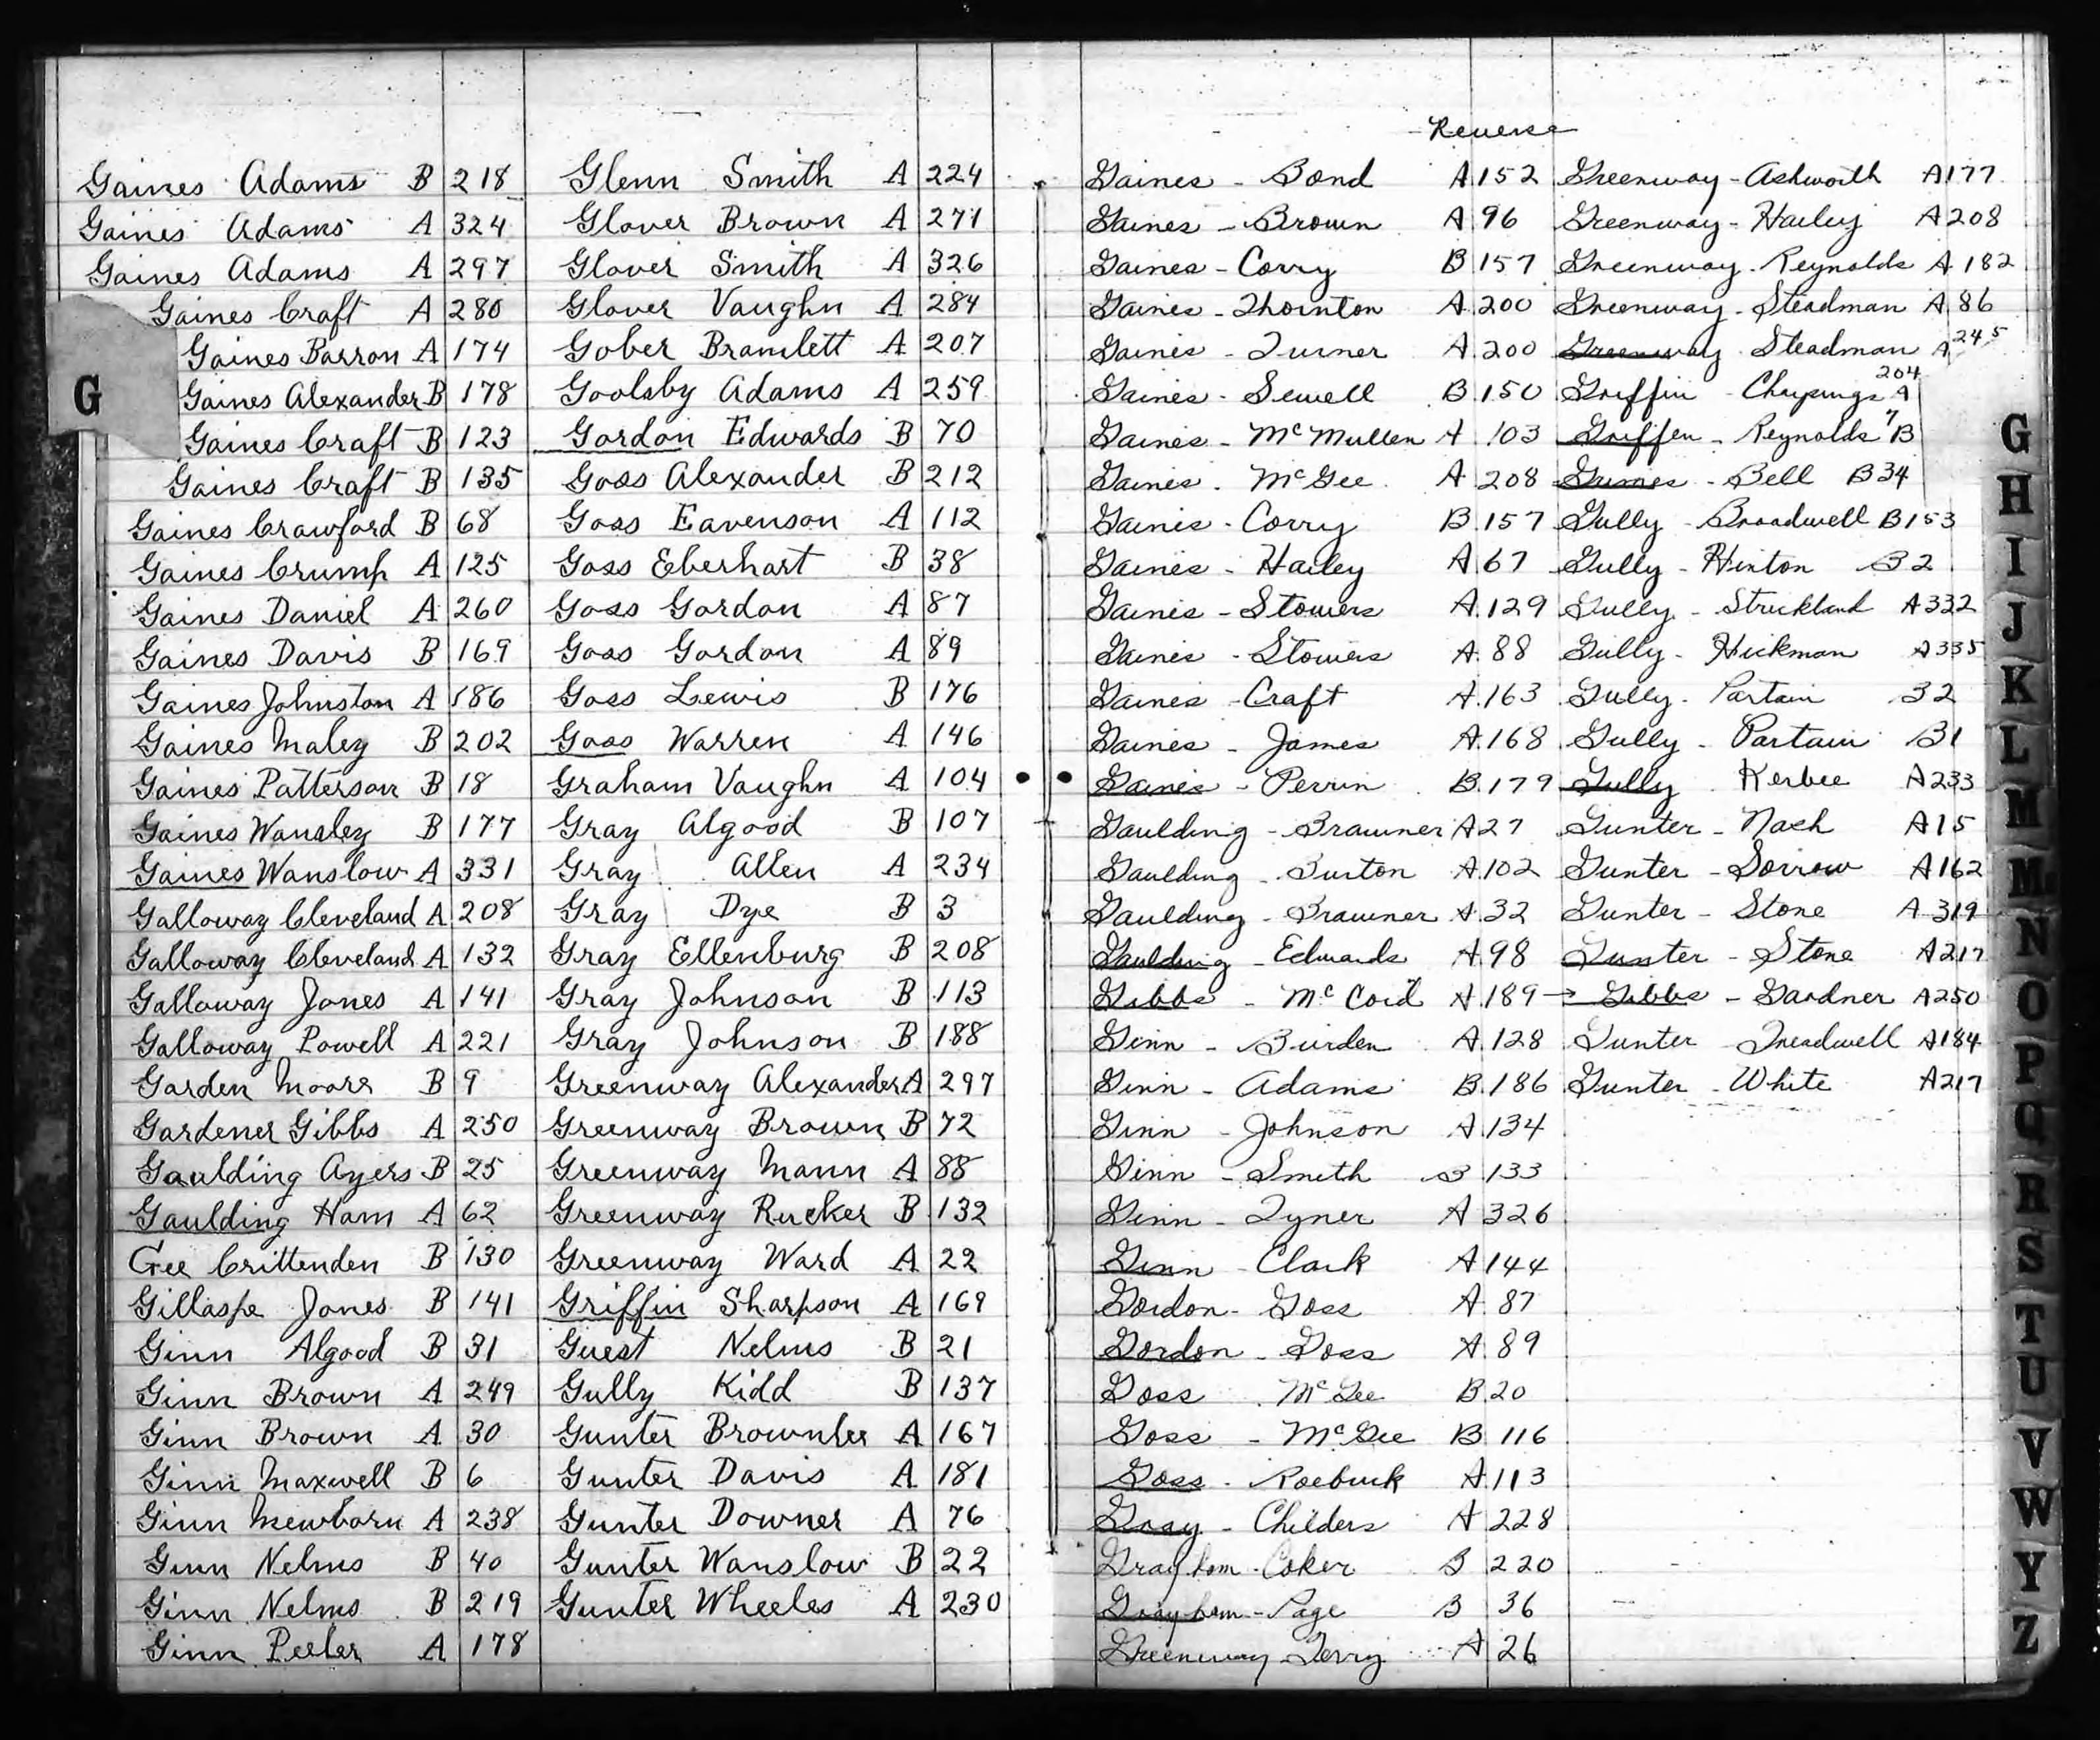 Gaines Adams B 218
Gaines Adams A 324
Gaines Adams A 297
Gaines Craft A 280
Gaines Barron A 174
G
Gaines Alexander B 178
Gaines Craft B 123
Gaines Craft B 135
Gaines Crawford B 68
Gaines Crump A 125
Gaines Daniel A 260
Gaines Davis B 169
Gaines Johnston A 186
Gaines Maley B 202
Gaines Patterson B 18
Gaines Wansley B 177
Gaines Wanslow A 331
Galloway Cleveland A 208
Galloway Cleveland A 132
Galloway Jones A 141
Galloway Powell A 221
Garden Moore B 9
Gardener Gibbs A 250
Gaulding Ayers B 25
Gaulding Ham A 62
Gee Crittenden B 130
Gillaspe Jones B 141
Ginn Algood B 31
Ginn Brown A 249
Ginn Brown A 30
Ginn Maxwell B 6
Ginn Mewborn A 238
Ginn Nelms B 40
Ginn Nelms B 219
Ginn Peeler A 178
Glenn Smith A 224
Glover Brown A 271
Glover Smith A 326
Glover Vaughn A 284
Gober Bramlett A 207
Goolsby Adams A 259
Gordon Edwards B 70
Goss Alexander B 212
Goss Eavenson A 112
Goss Eberhart B 38
Goss Gordon A 87
Goss Gordon A 89
Goss Lewis B 176
Goss Warren A 146
Graham Vaughn A 104
Gray Algood B 107
Gray Allen A 234
Gray Dye B 3
Gray Ellenburg B 208
Gray Johnson B 113
Gray Johnson B 188
Greenway Alexander A 297
Greenway Brown B 72
Greenway Mann A 88
Greenway Rucker B 132
Greenway Ward A 22
Griffin Sharpson A 169
Guest Nelms B 21
Gully Kidd B 137
Gunter Brownlee A 167
Gunter Davis A 181
Gunter Downer A 76
Gunter Wanslow B 22
Gunter Wheeles A 230
Reverse
Gaines - Bond A 152
Gaines - Brown A 96
Gaines - Corry B 157
Gaines - Thornton A 200
Gaines - Turner A 200
Gaines - Sewell B 150
Gaines - McMullen A 103
Gaines - McGee A 208
Gaines - Corry B 157
Gaines - Hailey A 67
Gaines - Stowers A 129
Gaines - Stowers A 88
Gaines - Craft A 163
Gaines - James A 168
Gaines - Perrin B 179
Gaulding - Brawner A 27
Gaulding - Burton A 102
Gaulding - Brawner A 32
Gaulding - Edwards A 98
Gibbs - McCord A 189 →
Ginn - Burden A 128
Ginn - Adams B 186
Ginn - Johnson A 134
Ginn - Smith B 133
Ginn - Tyner A 326
Ginn - Clark A 144
Gordon - Goss A 87
Gordon - Goss A 89
Goss - McGee B 20
Goss - McGee B 116
Goss - Roebuck A 113
Gray - Childers A 228
Grayham - Coker B 220
Grayham - Page B 36
Greenway Terry A 26
Greenway - Ashworth A 177
Greenway - Hailey A 208
Greenway - Reynolds A 182
Greenway - Steadman A 86
Greenway - Steadman A 245
Griffin - A 204
Griffen - Reynolds 7 B
- Bell B 34
Gully - Broadwell B 153
Gully - Hinton B 2
Gully - Strickland A 332
Gully - Hickman A 335
Gully - Partain B 2
Gully - Partain B 1
Gully Kerbee A 233
Gunter - Nash A 15
Gunter - Sorrow A 162
Gunter - Stone A 319
Gunter - Stone A 217
Gibbs - Gardner A 250
Gunter - Treadwell A 184
Gunter - White A 217
G
H
I
J
K
L
M
Mc
N
O
P
Q
R
S
T
U
V
W
Y
Z